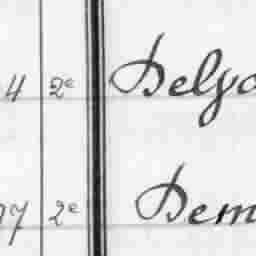 4 2e Delg
7 2e Dem